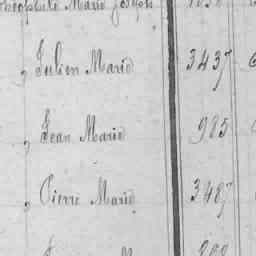 Théophile Marie Joseph
, Julien Marie 3437
, Jean Marie 985
, Pierre Marie 3487